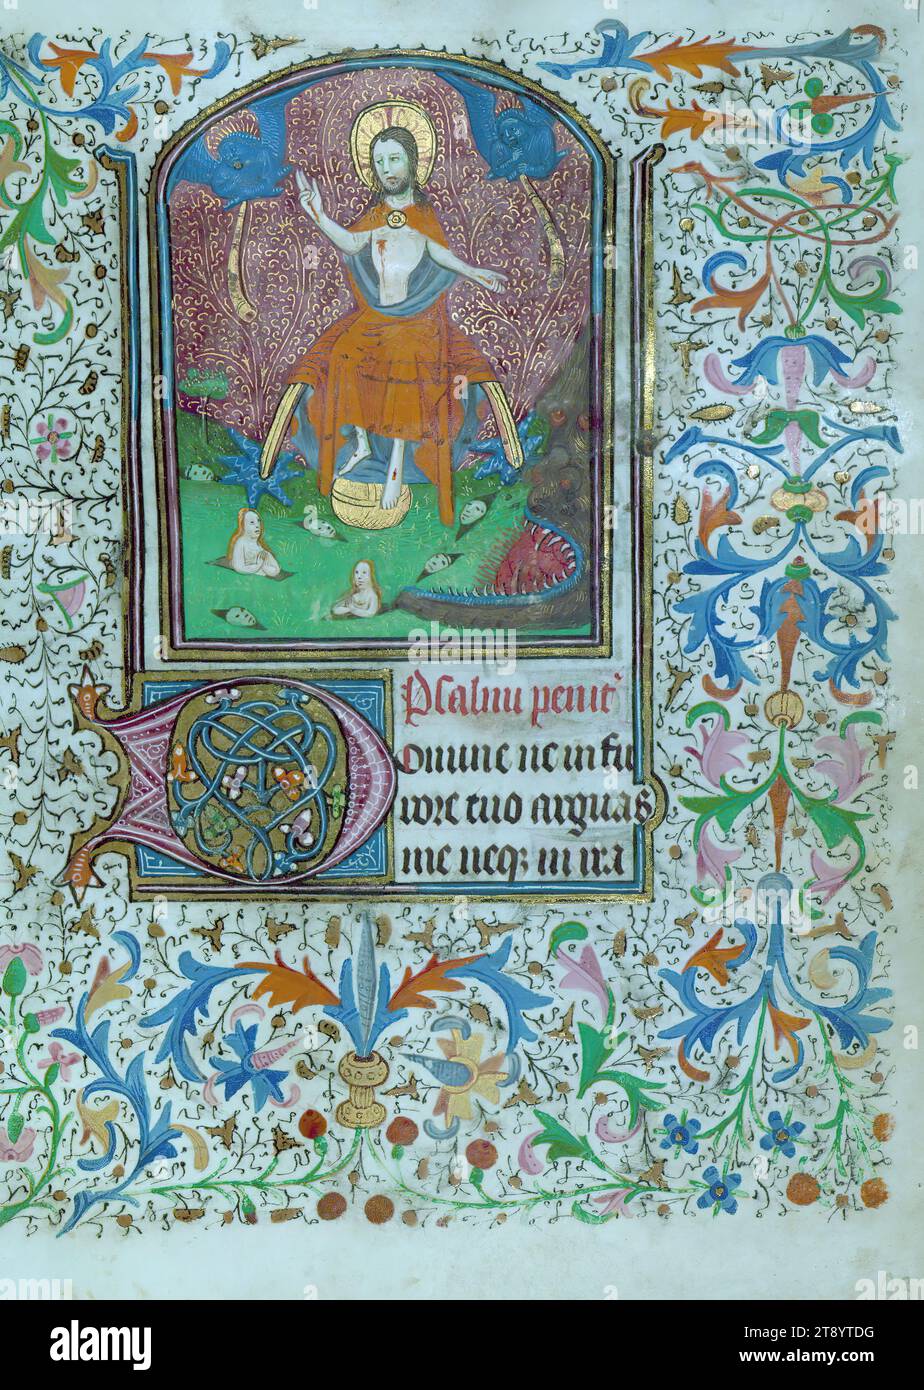 Psalmi penit'
Domine ne in fu
rore tuo arguas
me neq; in ira
alamy
Image ID: 2T8YTDG
www.alamy.com